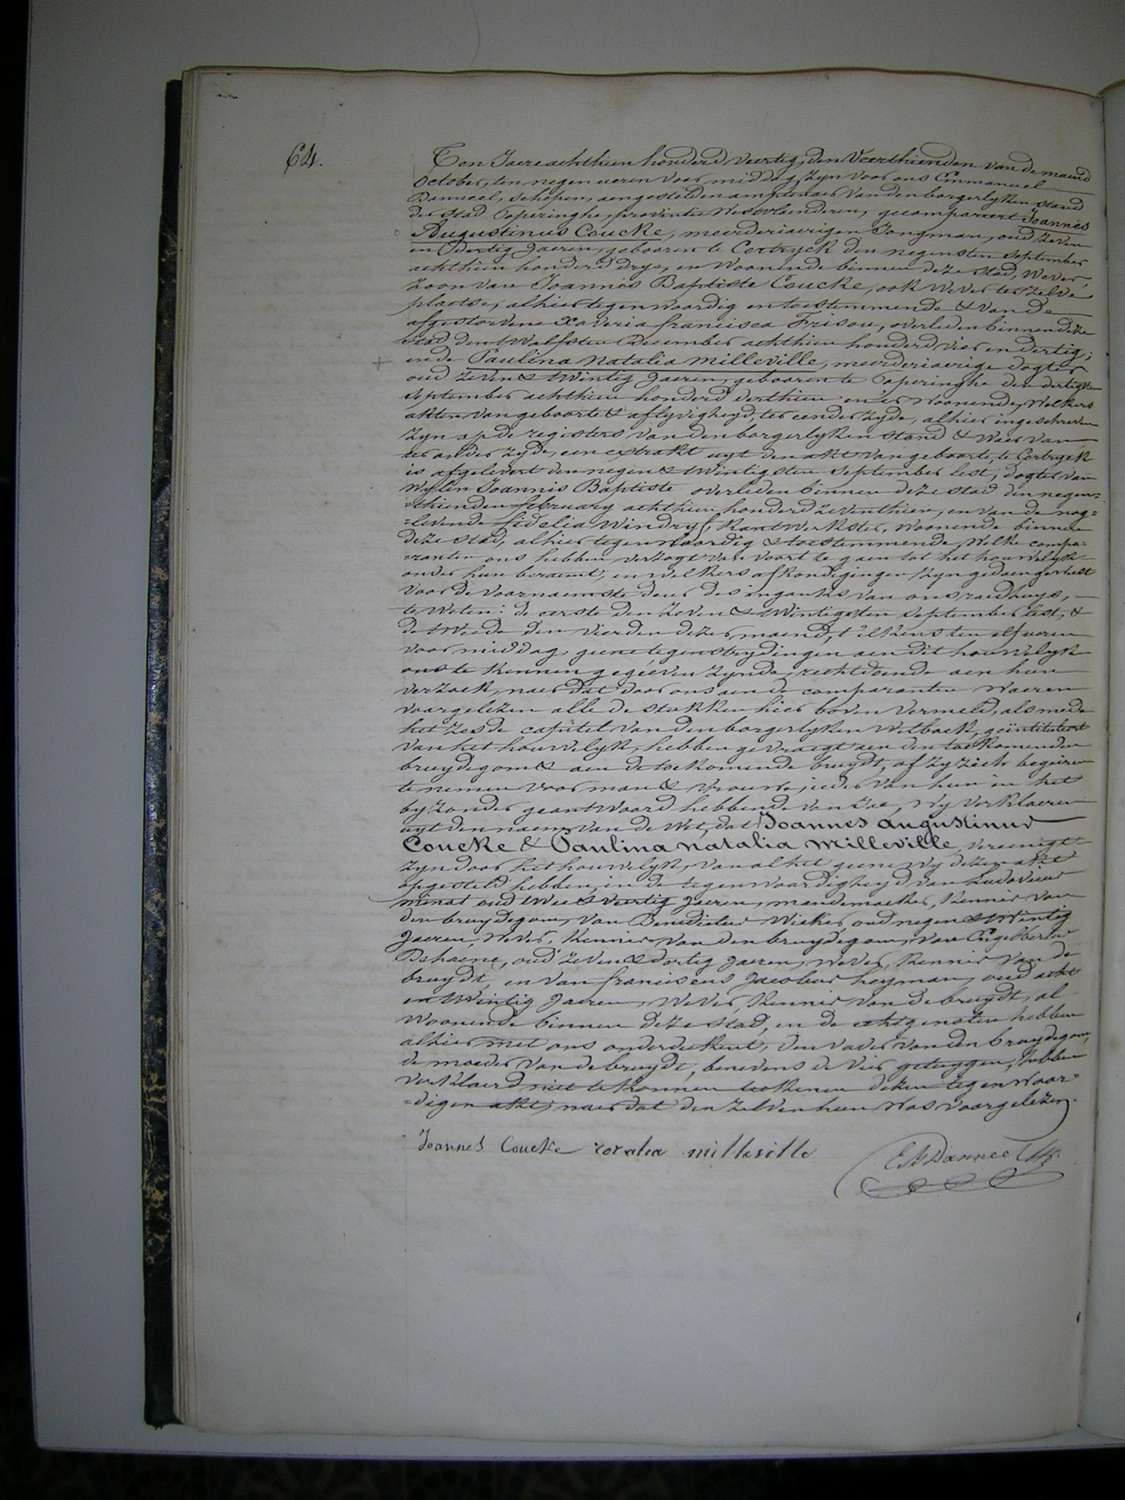 64.
Ten Jaere achthien honderd veertig, den veerthienden van de maend
October, ten negen ueren voor middag, zyn voor ons Emmanuel
Danneel, schepen, aengestelden ampenaer van den borgerlyken stand
der stad Poperinghe, provintie Westvlaenderen, gecompareert Joannes
Augustinus Coucke, meerderjaerigen Jongman, oud zeven
en dertig Jaeren, gebooren te Cortryck den negensten september
achthien honderd drye, en woonende binnen deze stad, wever,
zoon van Joannes Baptiste Coucke, ook wever ter zelve
plaetse, alhier tegenwoordig en toestemmende & van de
afgestorvene Xaveria francisca Frisou, overleden binnen deze
stad den twalfsten December achthien honderd vier en dertig;
ende Paulina Natalia Milleville, meerderjaerige dogter
oud zeven & twintig Jaeren, gebooren te Poperinghe den dertigsten
september achthien honderd derthien en er woonende, welkers
akten van geboorte & aflyvigheyd, ter eender zyde, alhier ingeschreven
zyn op de registers van den borgerlyken stand & waer van
ter ander zyde, een extrakt uyt den akt van geboorte, te Cortryck
is afgelevert den negen & twintigsten september lest; dogter van
wylen Joannes Baptiste overleden binnen deze stad den negen-
thienden february achthien honderd zeventhien, en van de nog-
=levende fidelia Windry, kantwerkster, woonende binnen
deze stad, alhier tegenwoordig & toestemmende, welke compa-
ranten ons hebben verzogt van voort te gaen tot het houwelyk
onder hun beraemt, en welkers afkondigingen zyn gedaen geweest
voor de voornaemste deur des ingancks van ons raedhuys,
te weten: de eerste den zeven & twintigsten september lest, &
de tweede den vierden dezer maend, t'elkens ten elf ueren
voor middag, geene tegenstrydingen aen dit houwelyk
ons te kennen gegéeven zynde, rechtdoende aen hun
verzoek, naer dat door ons aen de comparanten waeren
voorgelezen alle de stukken hier boven vermeld, als mede
het zesde capittel van den borgerlyken Wetboek, geïntituleert
van het houwelyk, hebben gevraegt aen den toekomenden
bruydegom & aen de toekomende bruydt, of zy zich begeiren
te nemen voor man & vrouw, ieder van hun in het
byzonder geantwoord hebbende van Jae, wy verklaeren
uyt den naem van de Wet, dat Joannes Augustinus
Coucke & Paulina Natalia Milleville, vereenigt
zyn door het houwelyk, van al het geene wy dezen akt
opgesteld hebben, in de tegenwoordigheyd van Ludovicus
minat oud twee & veertig Jaeren, mandemaeker, kennis van
den bruydegom, van Benedictus oud negen & twintig
Jaeren, wever, kennis van den bruydegom, van Engelbertus
Dehaene, oud zeven & dertig Jaeren, wever, kennis van de
bruydt, en van franciscus Jacobus heyman, oud acht
en twintig Jaeren, wever, kennis van de bruydt, al
woonende binnen deze stad, en de echtgenoten hebben
alhier met ons onderteekent, den vader van den bruydegom,
de moeder van de bruydt, benevens de vier getuygen, hebben
verklaerd niet te konnen teekenen dezen tegenwoor-
=digen akt, naer dat den zelven hun was voorgelezen.
Joannes Coucke natalia milleville EADanneel